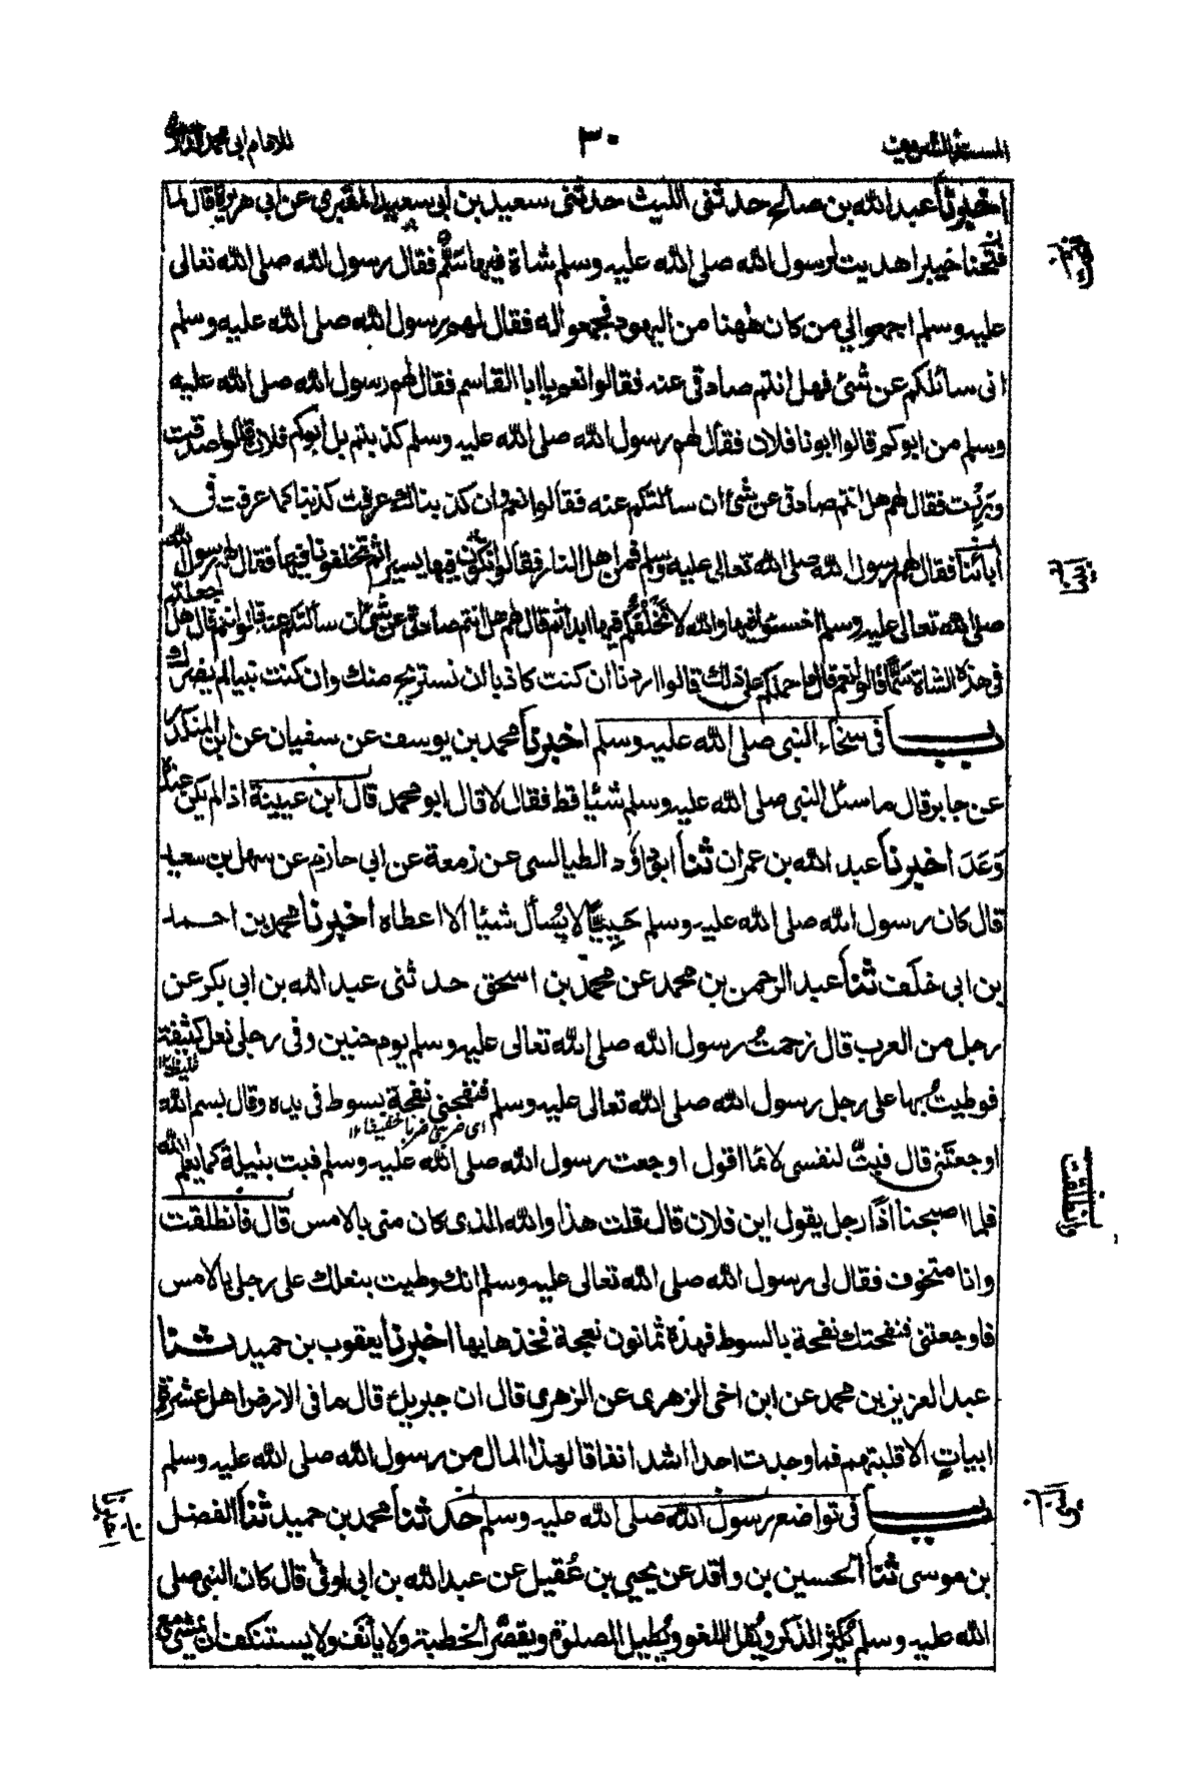 المسند الشريف ٣٠ للامام ابى محمد الدارمى
اخبرنا عبد الله بن صالح حدثنى الليث حدثنى سعيد بن ابى سعيد المقبرى عن ابى هريرة قال لما
فتحنا خيبر اهديت لرسول الله صلى الله عليه وسلم شاة فيها سم فقال رسول الله صلى الله تعالى
عليه وسلم اجمعوا لي من كان ههنا من اليهود فجمعوا له فقال لهم رسول الله صلى الله عليه وسلم
انى سائلكم عن شئ فهل انتم صادقى عنه فقالوا نعم يا ابا القاسم فقال لهم رسول الله صلى الله عليه
وسلم من ابوكم قالوا ابونا فلان فقال لهم رسول الله صلى الله عليه وسلم كذبتم بل ابوكم فلان قالوا صدقت
وبررت فقال لهم هل انتم صادقى عن شئ ان سألتكم عنه فقالوا نعم وان كذبناك عرفت كذبنا كما عرفت فى
ابائنا فقال لهم رسول الله صلى الله تعالى عليه وسلم فمن اهل النار فقالوا نكون فيها يسيرا ثم تخلفونا فيها فقال لهم رسول الله
صلى الله تعالى عليه وسلم اخسئوا فيها والله لا نخلفكم فيها ابدا ثم قال لهم هل انتم صادقى عن شئ ان سألتكم عنه قالوا نعم قال هل جعلتم
فى هذه الشاة سما قالوا نعم قال ما حملكم على ذلك قالوا اردنا ان كنت كاذبا ان نستريح منك وان كنت نبيا لم يضرك
باب فى سخاء النبى صلى الله عليه وسلم اخبرنا محمد بن يوسف عن سفيان عن ابن المنكدر
عن جابر قال ما سئل النبى صلى الله عليه وسلم شيئا قط فقال لا قال ابو محمد قال ابن عيينة اذا لم يكن عنده
وَعَدَ اخبرنا عبد الله بن عمران ثنا ابو داؤد الطيالسى عن زمعة عن ابى حازم عن سهل بن سعيد
قال كان رسول الله صلى الله عليه وسلم حَيِيًّا لا يُسأل شيئا الا اعطاه اخبرنا محمد بن احمد
بن ابى خلف ثنا عبد الرحمن بن محمد عن محمد بن اسحق حدثنى عبد الله بن ابى بكر عن
رجل من العرب قال زحمتُ رسول الله صلى الله تعالى عليه وسلم يوم حنين وفى رجلى نعل كثيفة
غليظة ١٢
فوطيتُ بها على رجل رسول الله صلى الله تعالى عليه وسلم فنفحنى نفحة بسوط فى يده وقال بسم الله
اى ضربنى ضربا خفيفا ١٢
اوجعتنى قال فبتُّ لنفسى لائما اقول اوجعت رسول الله صلى الله عليه وسلم فبت بليلة كما يعلم الله
فلما اصبحنا اذا رجل يقول اين فلان قال قلت هذا والله الذى كان منى بالامس قال فانطلقت
وانا متخوف فقال لى رسول الله صلى الله تعالى عليه وسلم انك وطيت بنعلك على رجلى بالامس
فاوجعتنى فنفحتك نفحة بالسوط فهذه ثمانون نعجة فخذها بها اخبرنا يعقوب بن حميد ثنا
عبد العزيز بن محمد عن ابن اخى الزهرى عن الزهرى قال ان جبريل قال ما فى الارض اهل عشرة
ابيات الا قلبتهم فما وجدت احدا اشد انفاقا لهذا المال من رسول الله صلى الله عليه وسلم
باب فى تواضع رسول الله صلى الله عليه وسلم حدثنا محمد بن حميد ثنا الفضل
بن موسى ثنا الحسين بن واقد عن يحيى بن عُقيل عن عبد الله بن ابى اوفى قال كان النبى صلى
الله عليه وسلم يُكثر الذكر ويُقل اللغو ويُطيل الصلوة ويقصر الخطبة ولا يأنف ولا يستنكف ان يمشى مع